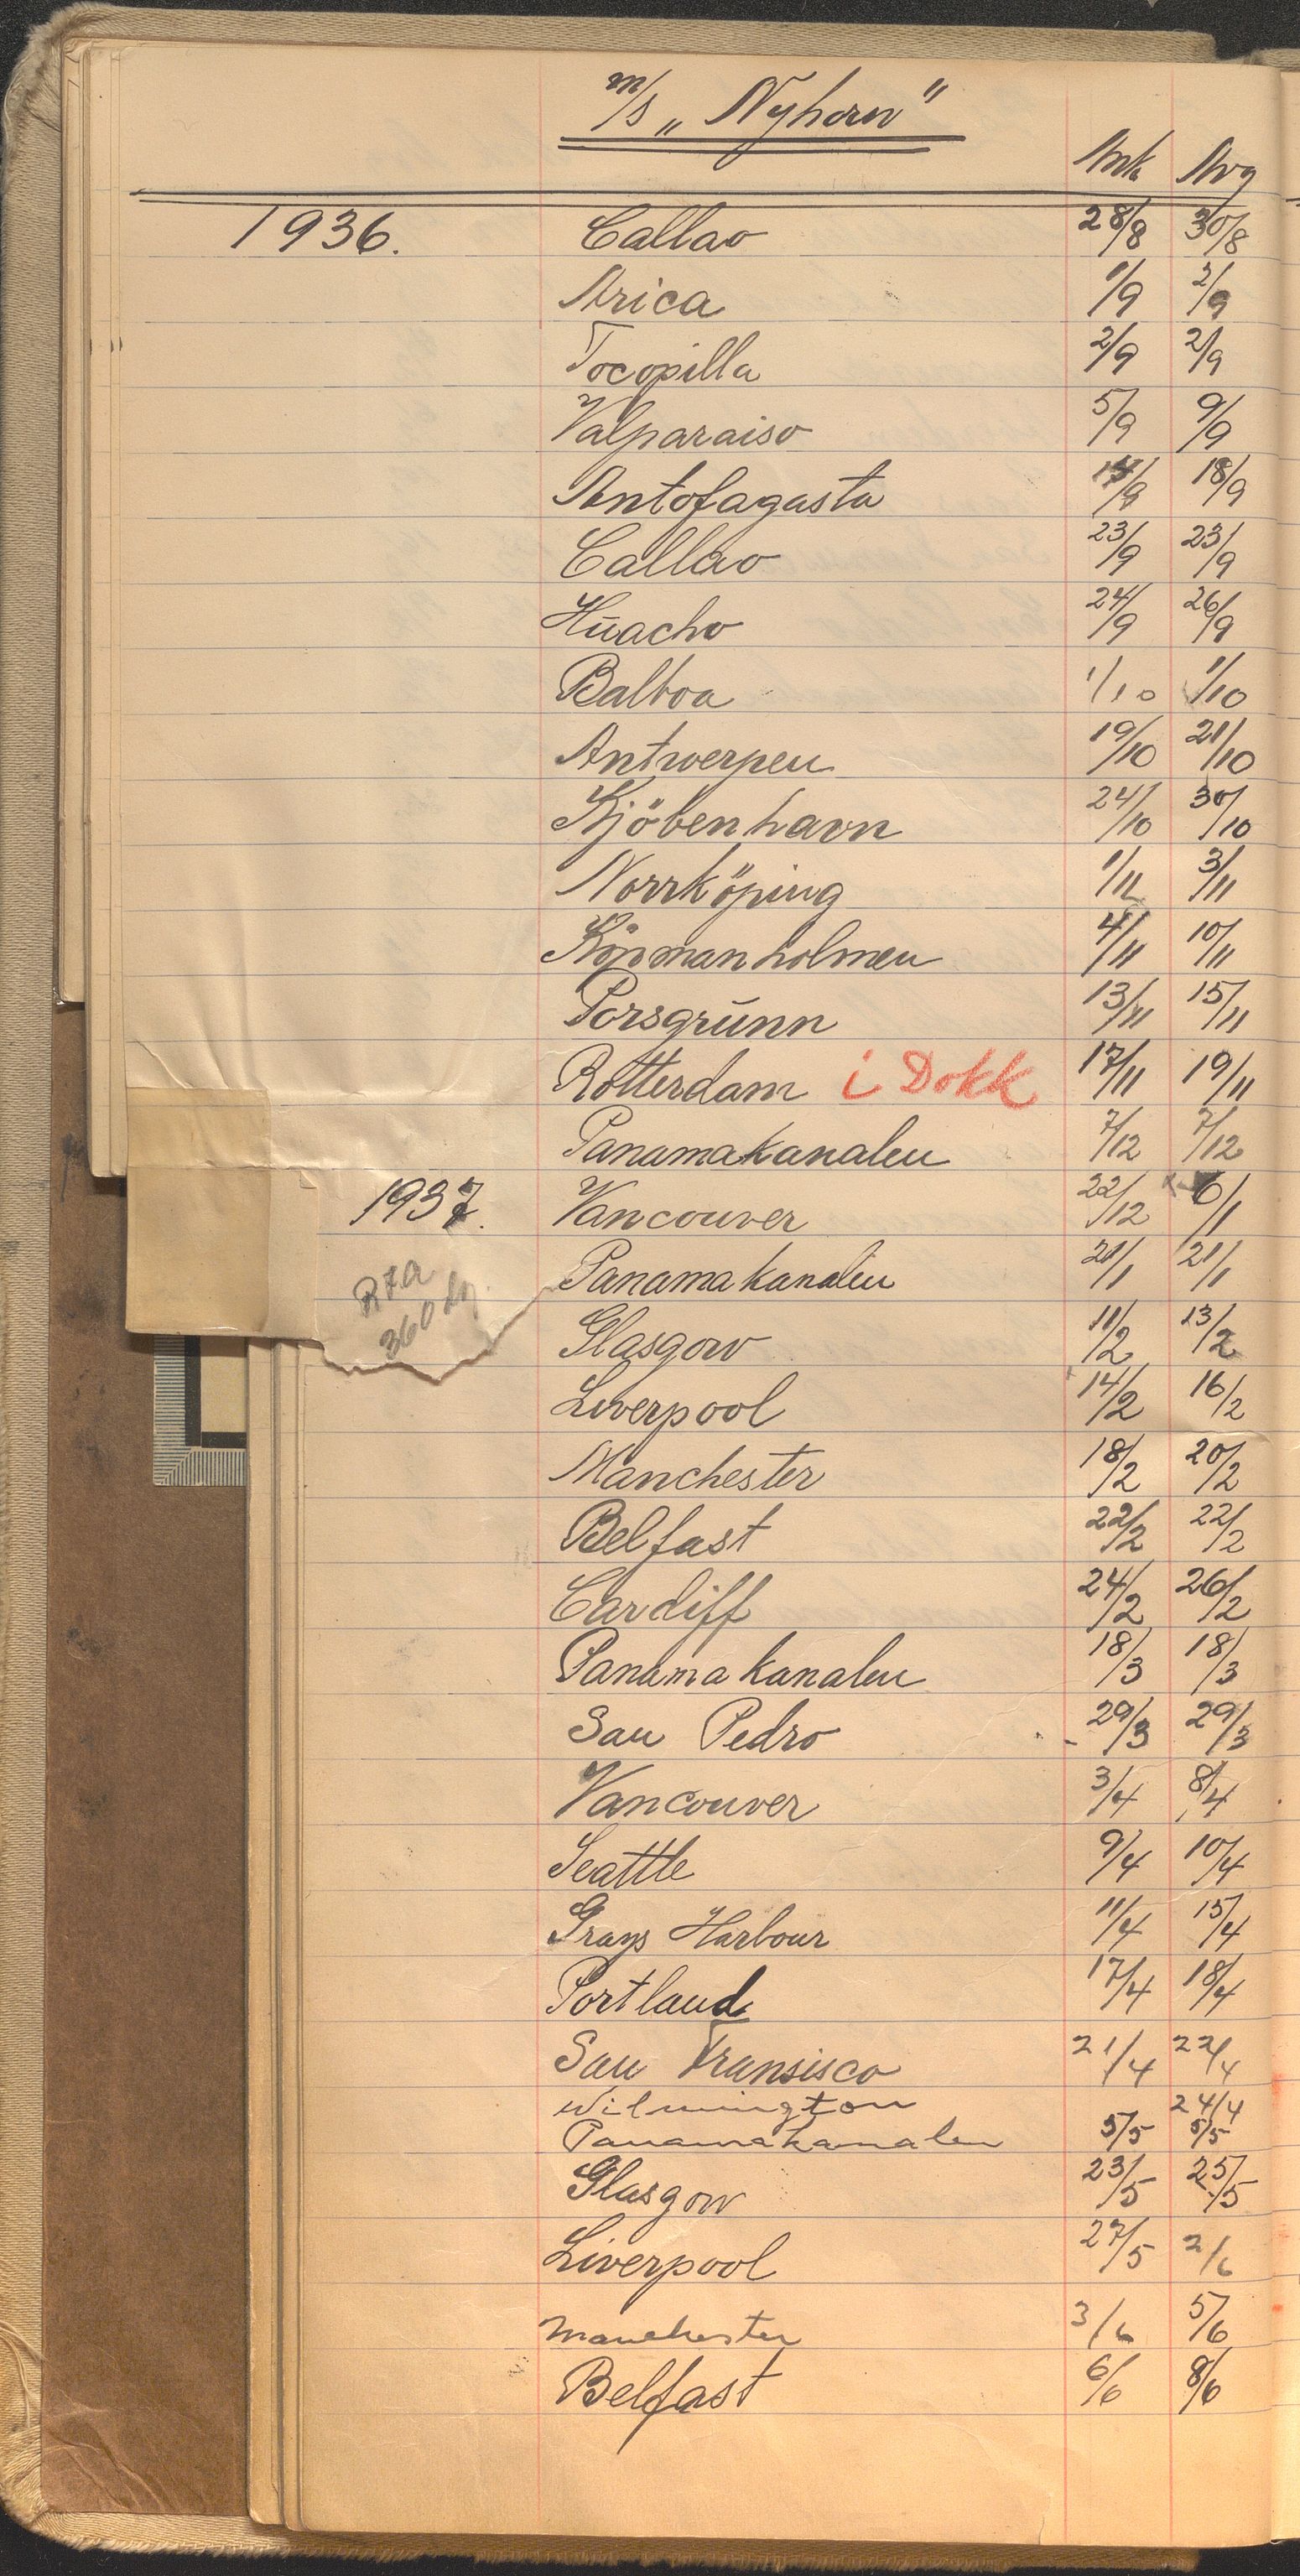 m/s „Nyhorn"
Ank Avg
1936. Callao 28/8 30/8
Arica 1/9 2/9
Tocopilla 2/9 2/9
Valparaiso 5/9 9/9
Antofagasta 14/9 18/9
Callao 23/9 23/9
Huacho 24/9 26/9
Balboa 1/10 1/10
Antwerpen 19/10 21/10
Kjöbenhavn 24/10 30/10
Norrköping 1/11 3/11
Köpmanholmen 4/11 10/11
Porsgrunn 13/11 15/11
Rotterdam i Dokk 17/11 19/11
Panamakanalen 7/12 7/12
1937. Vancouver 22/12 6/1
Panamakanalen 21/1 21/1
Glasgow 11/2 13/2
Liverpool 14/2 16/2
Manchester 18/2 20/2
Belfast 22/2 22/2
Cardiff 24/2 26/2
Panamakanalen 18/3 18/3
San Pedro 29/3 29/3
Vancouver 3/4 8/4
Seattle 9/4 10/4
Grays Harbour 11/4 15/4
Portland 17/4 18/4
San Fransisco 21/4 22/4
Wilmington 24/4
Panamakanalen 5/5 5/5
Glasgow 23/5 25/5
Liverpool 27/5 2/6
Manchester 3/6 5/6
Belfast 6/6 8/6